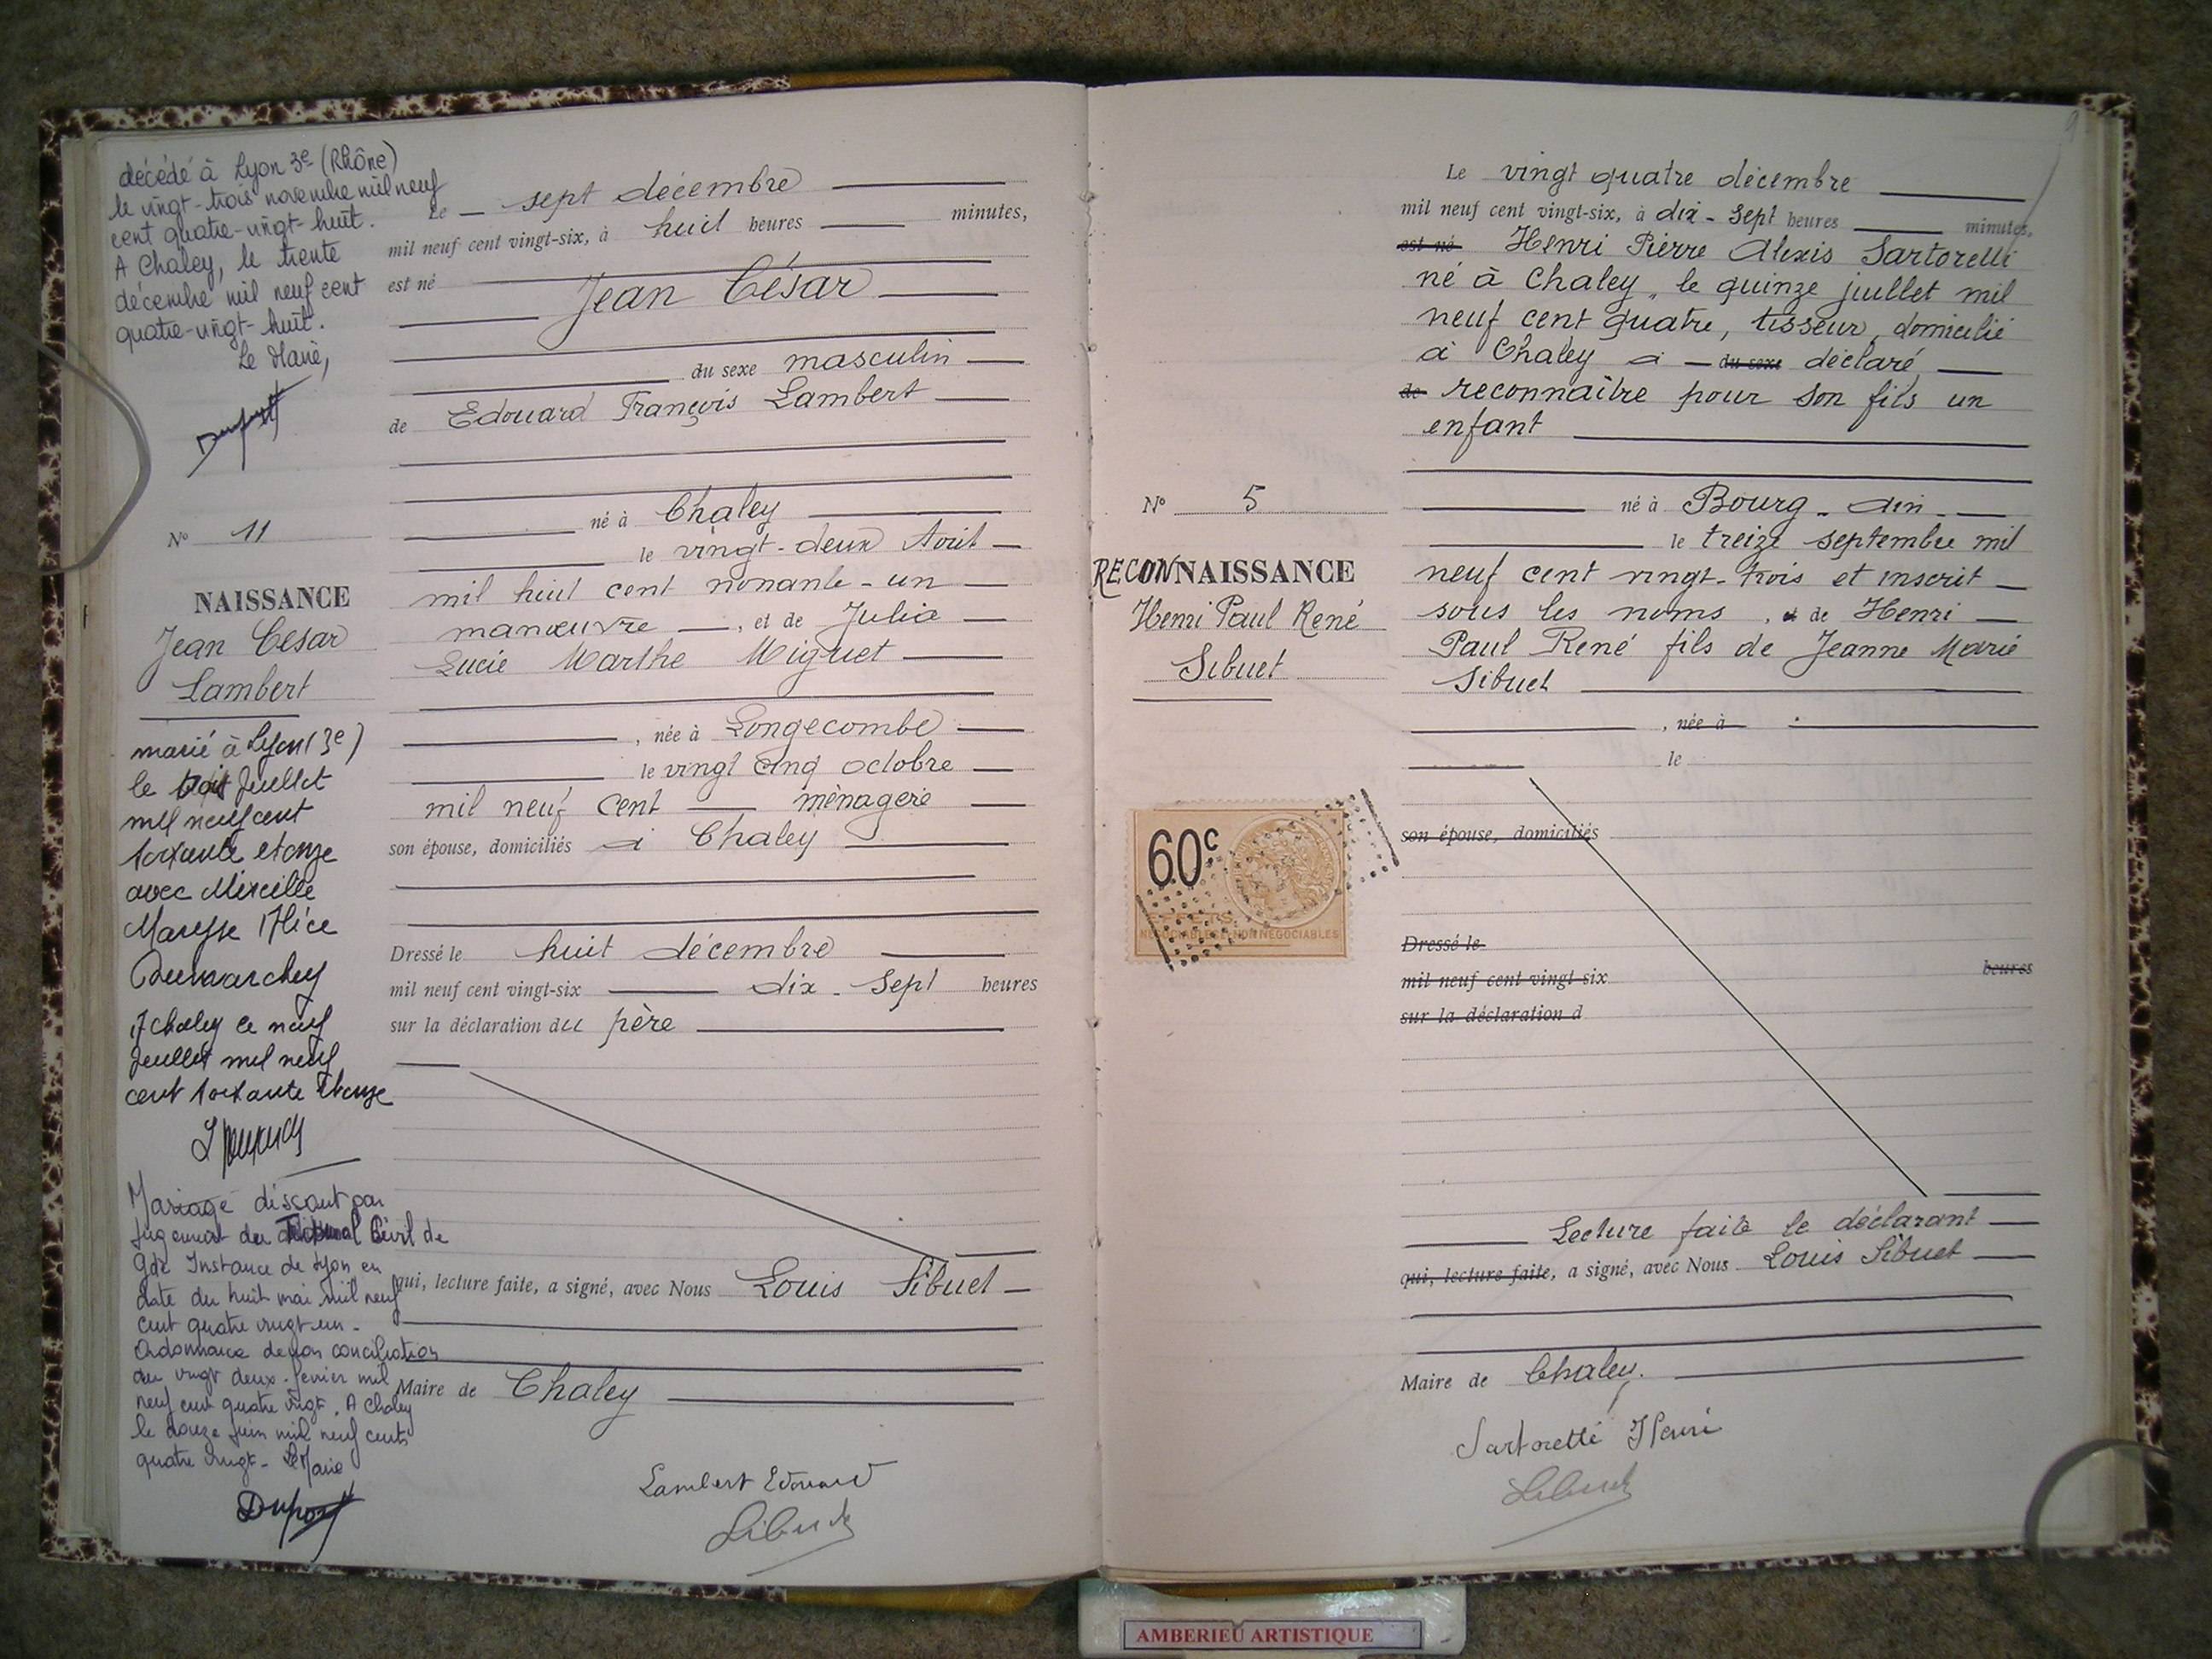 décédé à Lyon 3e (Rhône)
le vingt-trois novembre mil neuf
cent quatre-vingt-huit.
A Chaley, le trente
décembre mil neuf cent
quatre-vingt-huit.
Le Maire,
Dupont
N° 11
NAISSANCE
Jean César
Lambert
marié à Lyon (3e)
le trois Juillet
mil neuf cent
soixante et onze
avec Mireille
Maryse Alice
Dumarchey
A Chaley ce neuf
Juillet mil neuf
cent soixante et onze
Mariage dissout par
Jugement du Tribunal Civil de
Gde Instance de Lyon en
date du huit mai mil neuf
cent quatre vingt un -
Ordonnance de non conciliation
du vingt deux février mil
neuf cent quatre vingt. A Chaley
le douze juin mil neuf cents
quatre vingt - Le Maire
Dupont
Le sept décembre
mil neuf cent vingt-six, à huit heures minutes,
est né
Jean César
du sexe masculin
de Edouard François Lambert
né à Chaley
le vingt-deux Avril
mil huit cent nonante-un
manœuvre, et de Julia
Lucie Marthe Miguet
, née à Longecombe
le vingt cinq octobre
mil neuf cent ménagère
son épouse, domiciliés à Chaley
Dressé le huit décembre
mil neuf cent vingt-six dix-sept heures
sur la déclaration du père
qui, lecture faite, a signé, avec Nous Louis Sibuet
Maire de Chaley
Lambert Edouard
Sibuet
9
N° 5
RECONNAISSANCE
Henri Paul René
Sibuet
60c
EFFETS
NÉGOCIABLES ET NON NÉGOCIABLES
Le vingt quatre décembre
mil neuf cent vingt-six, à dix-sept heures minutes,
est né Henri Pierre Alexis Sartorelli
né à Chaley, le quinze juillet mil
neuf cent quatre, tisseur, domicilié
à Chaley a du sexe déclaré
de reconnaître pour son fils un
enfant
né à Bourg - Ain -
le treize septembre mil
neuf cent vingt-trois et inscrit
sous les noms, de Henri
Paul René fils de Jeanne Marie
Sibuet
, née à
le
son épouse, domiciliés
Dressé le
mil neuf cent vingt-six heures
sur la déclaration d
Lecture faite le déclarant
qui, lecture faite, a signé, avec Nous Louis Sibuet
Maire de Chaley.
Sartorelli Henri
Sibuet
AMBERIEU ARTISTIQUE